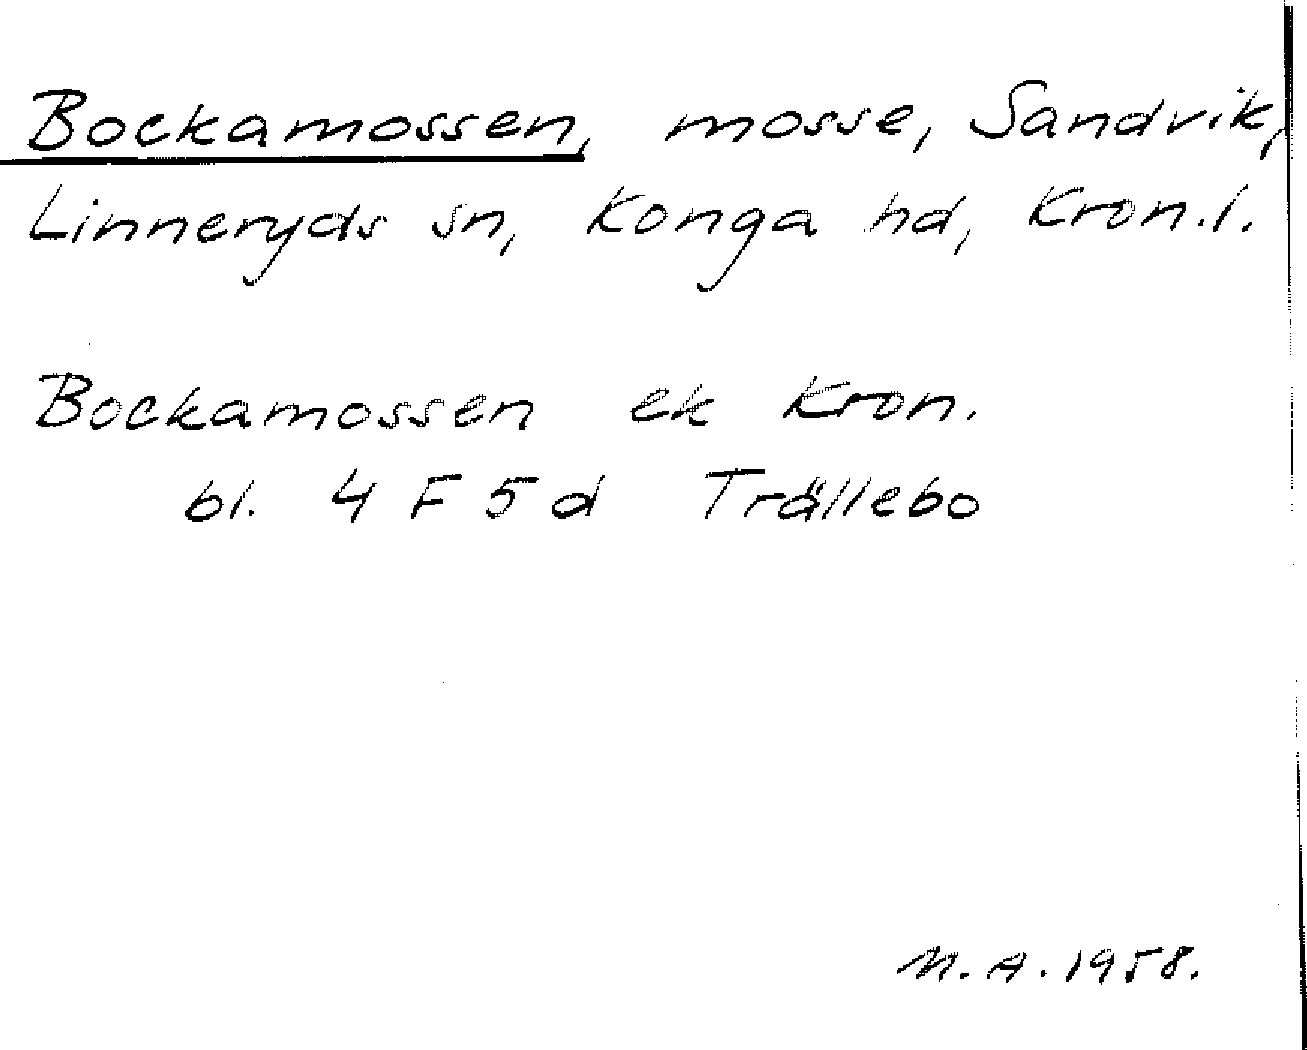 Bockamossen, mosse, Sandvik,
Linneryds sn, Konga hd, Kron.l.
Bockamossen ek Kron.
bl. 4 F 5 d Trällebo
M.A. 1958.